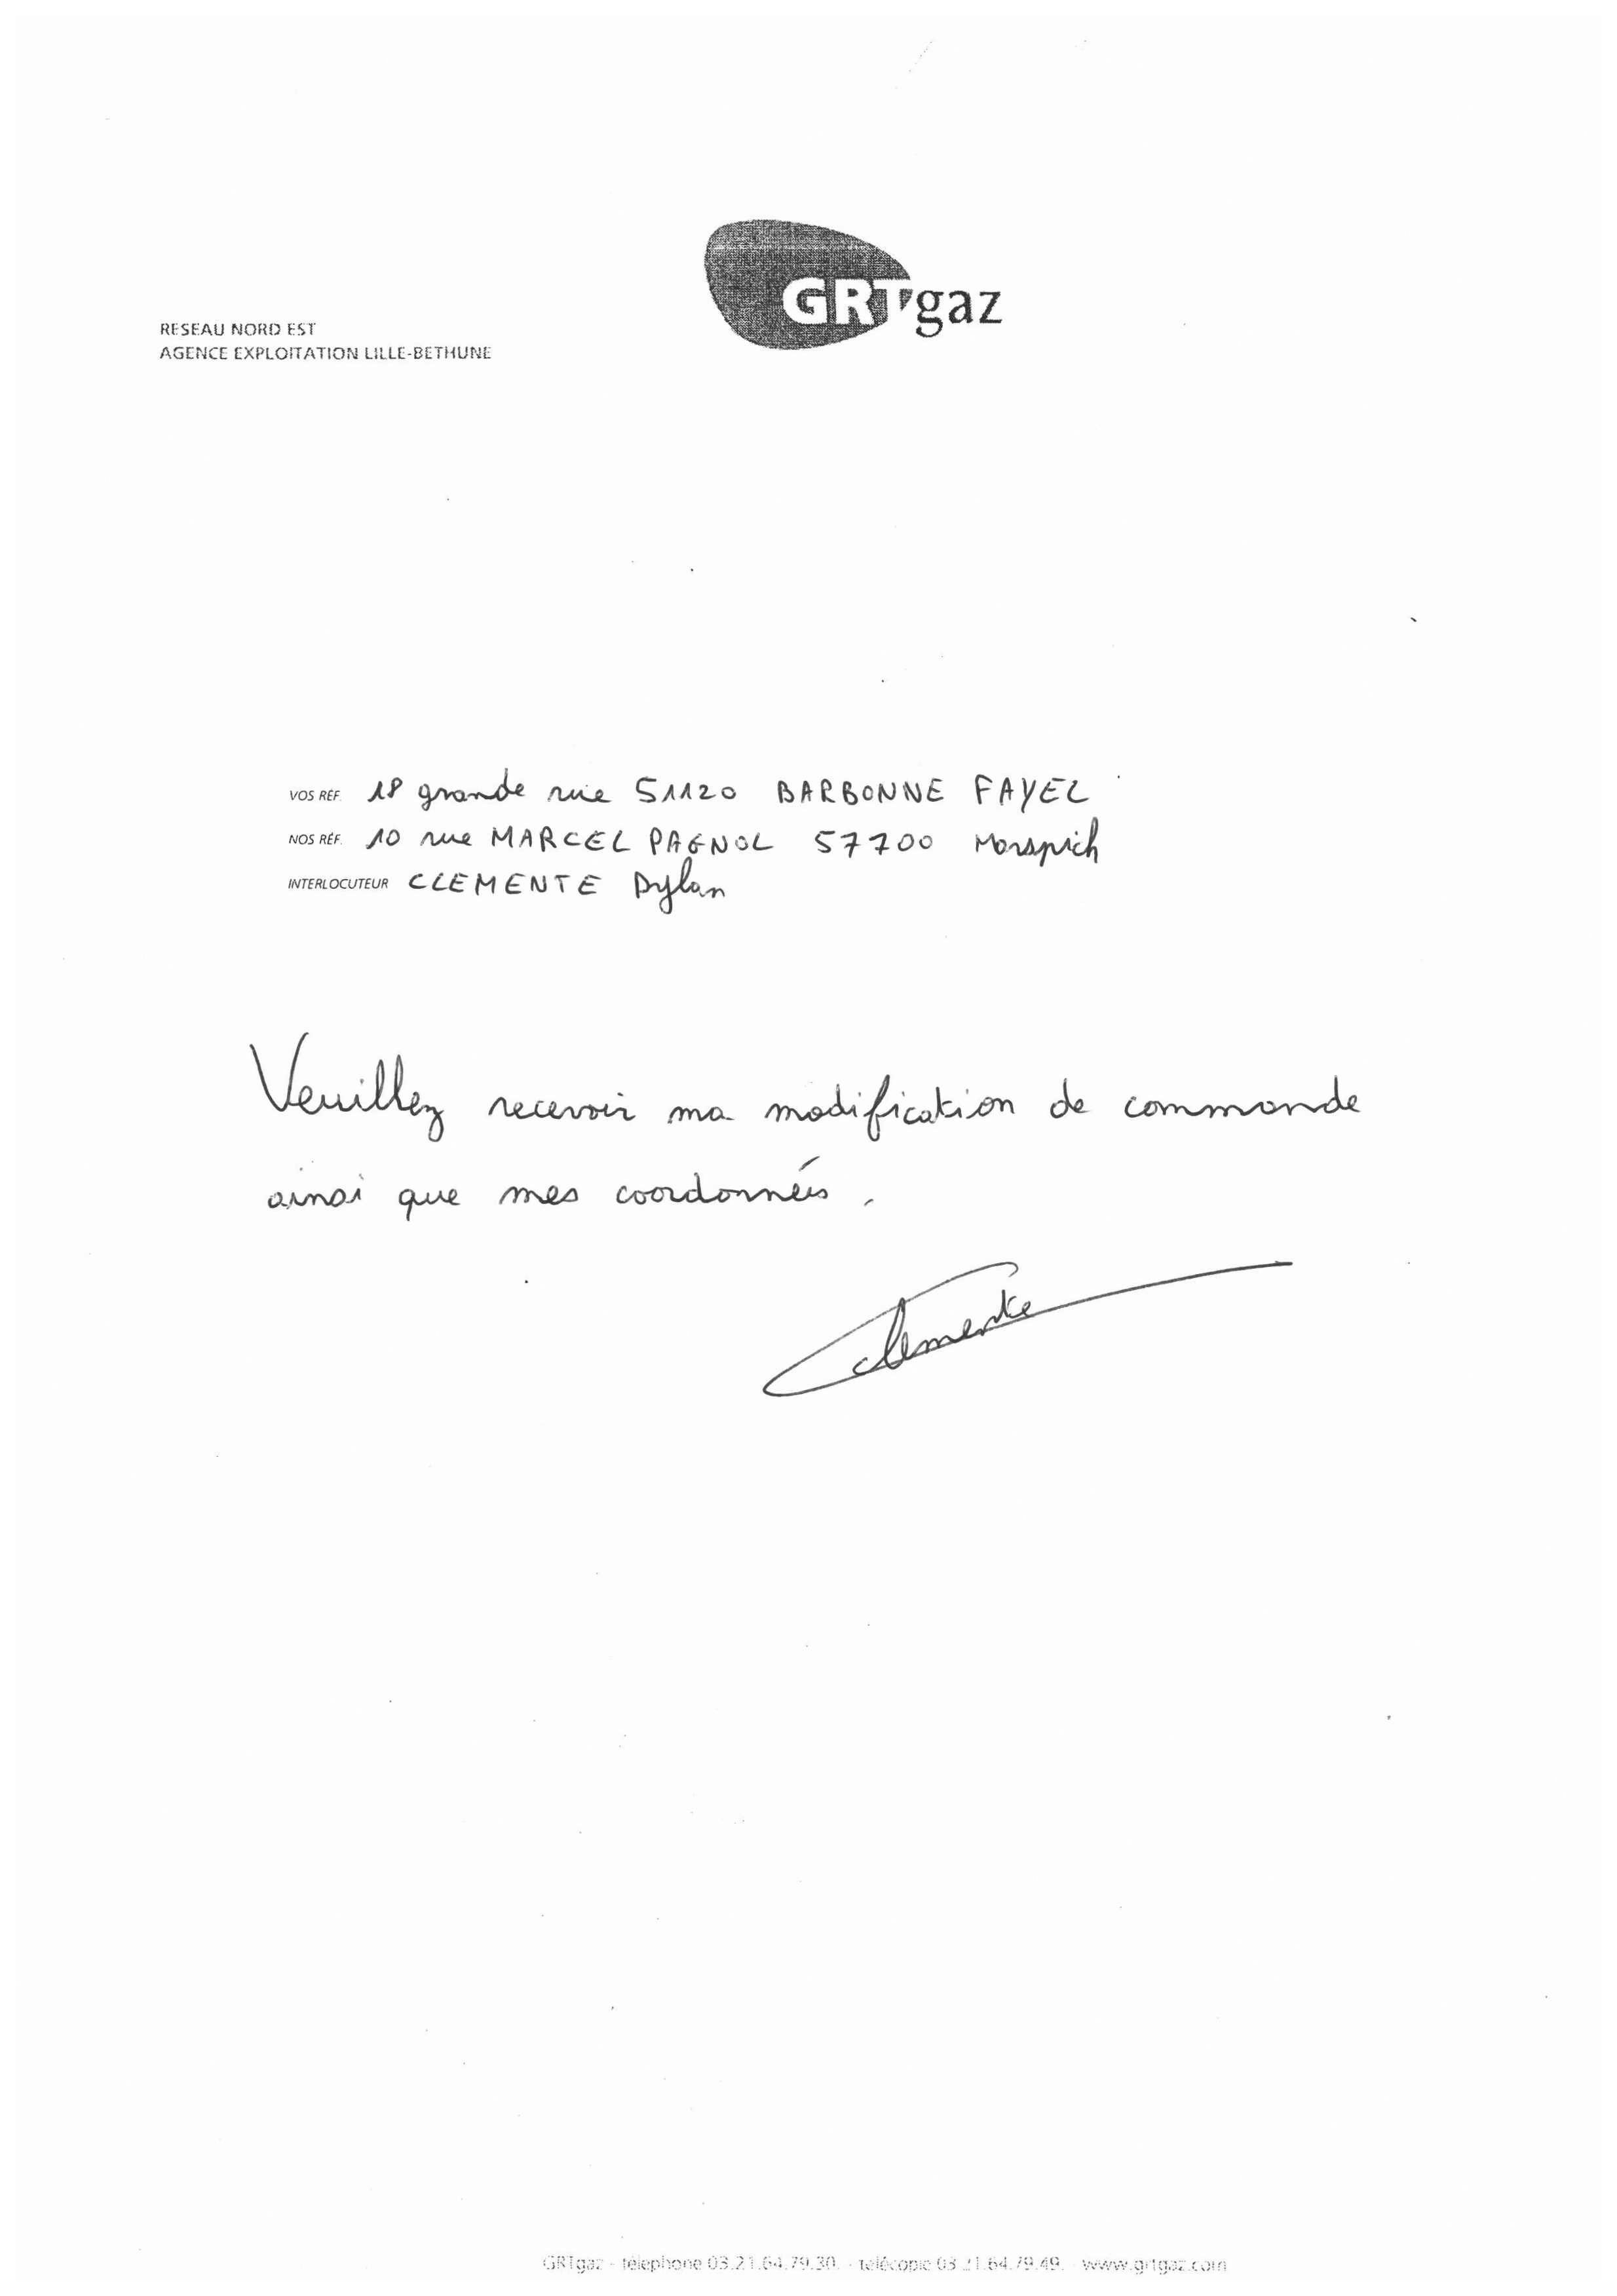 GRTgaz
RESEAU NORD EST
AGENCE EXPLOITATION LILLE-BETHUNE
VOS RÉF. 18 grande rue 51120 BARBONNE FAYEL
NOS RÉF. 10 rue MARCEL PAGNOL 57700 Morspich
INTERLOCUTEUR CLEMENTE Dylan
Veuillez recevoir ma modification de commande
ainsi que mes coordonnées.
Clemente
GRTgaz - téléphone 03.21.64.79.30. - télécopie 03.21.64.79.49. - www.grtgaz.com